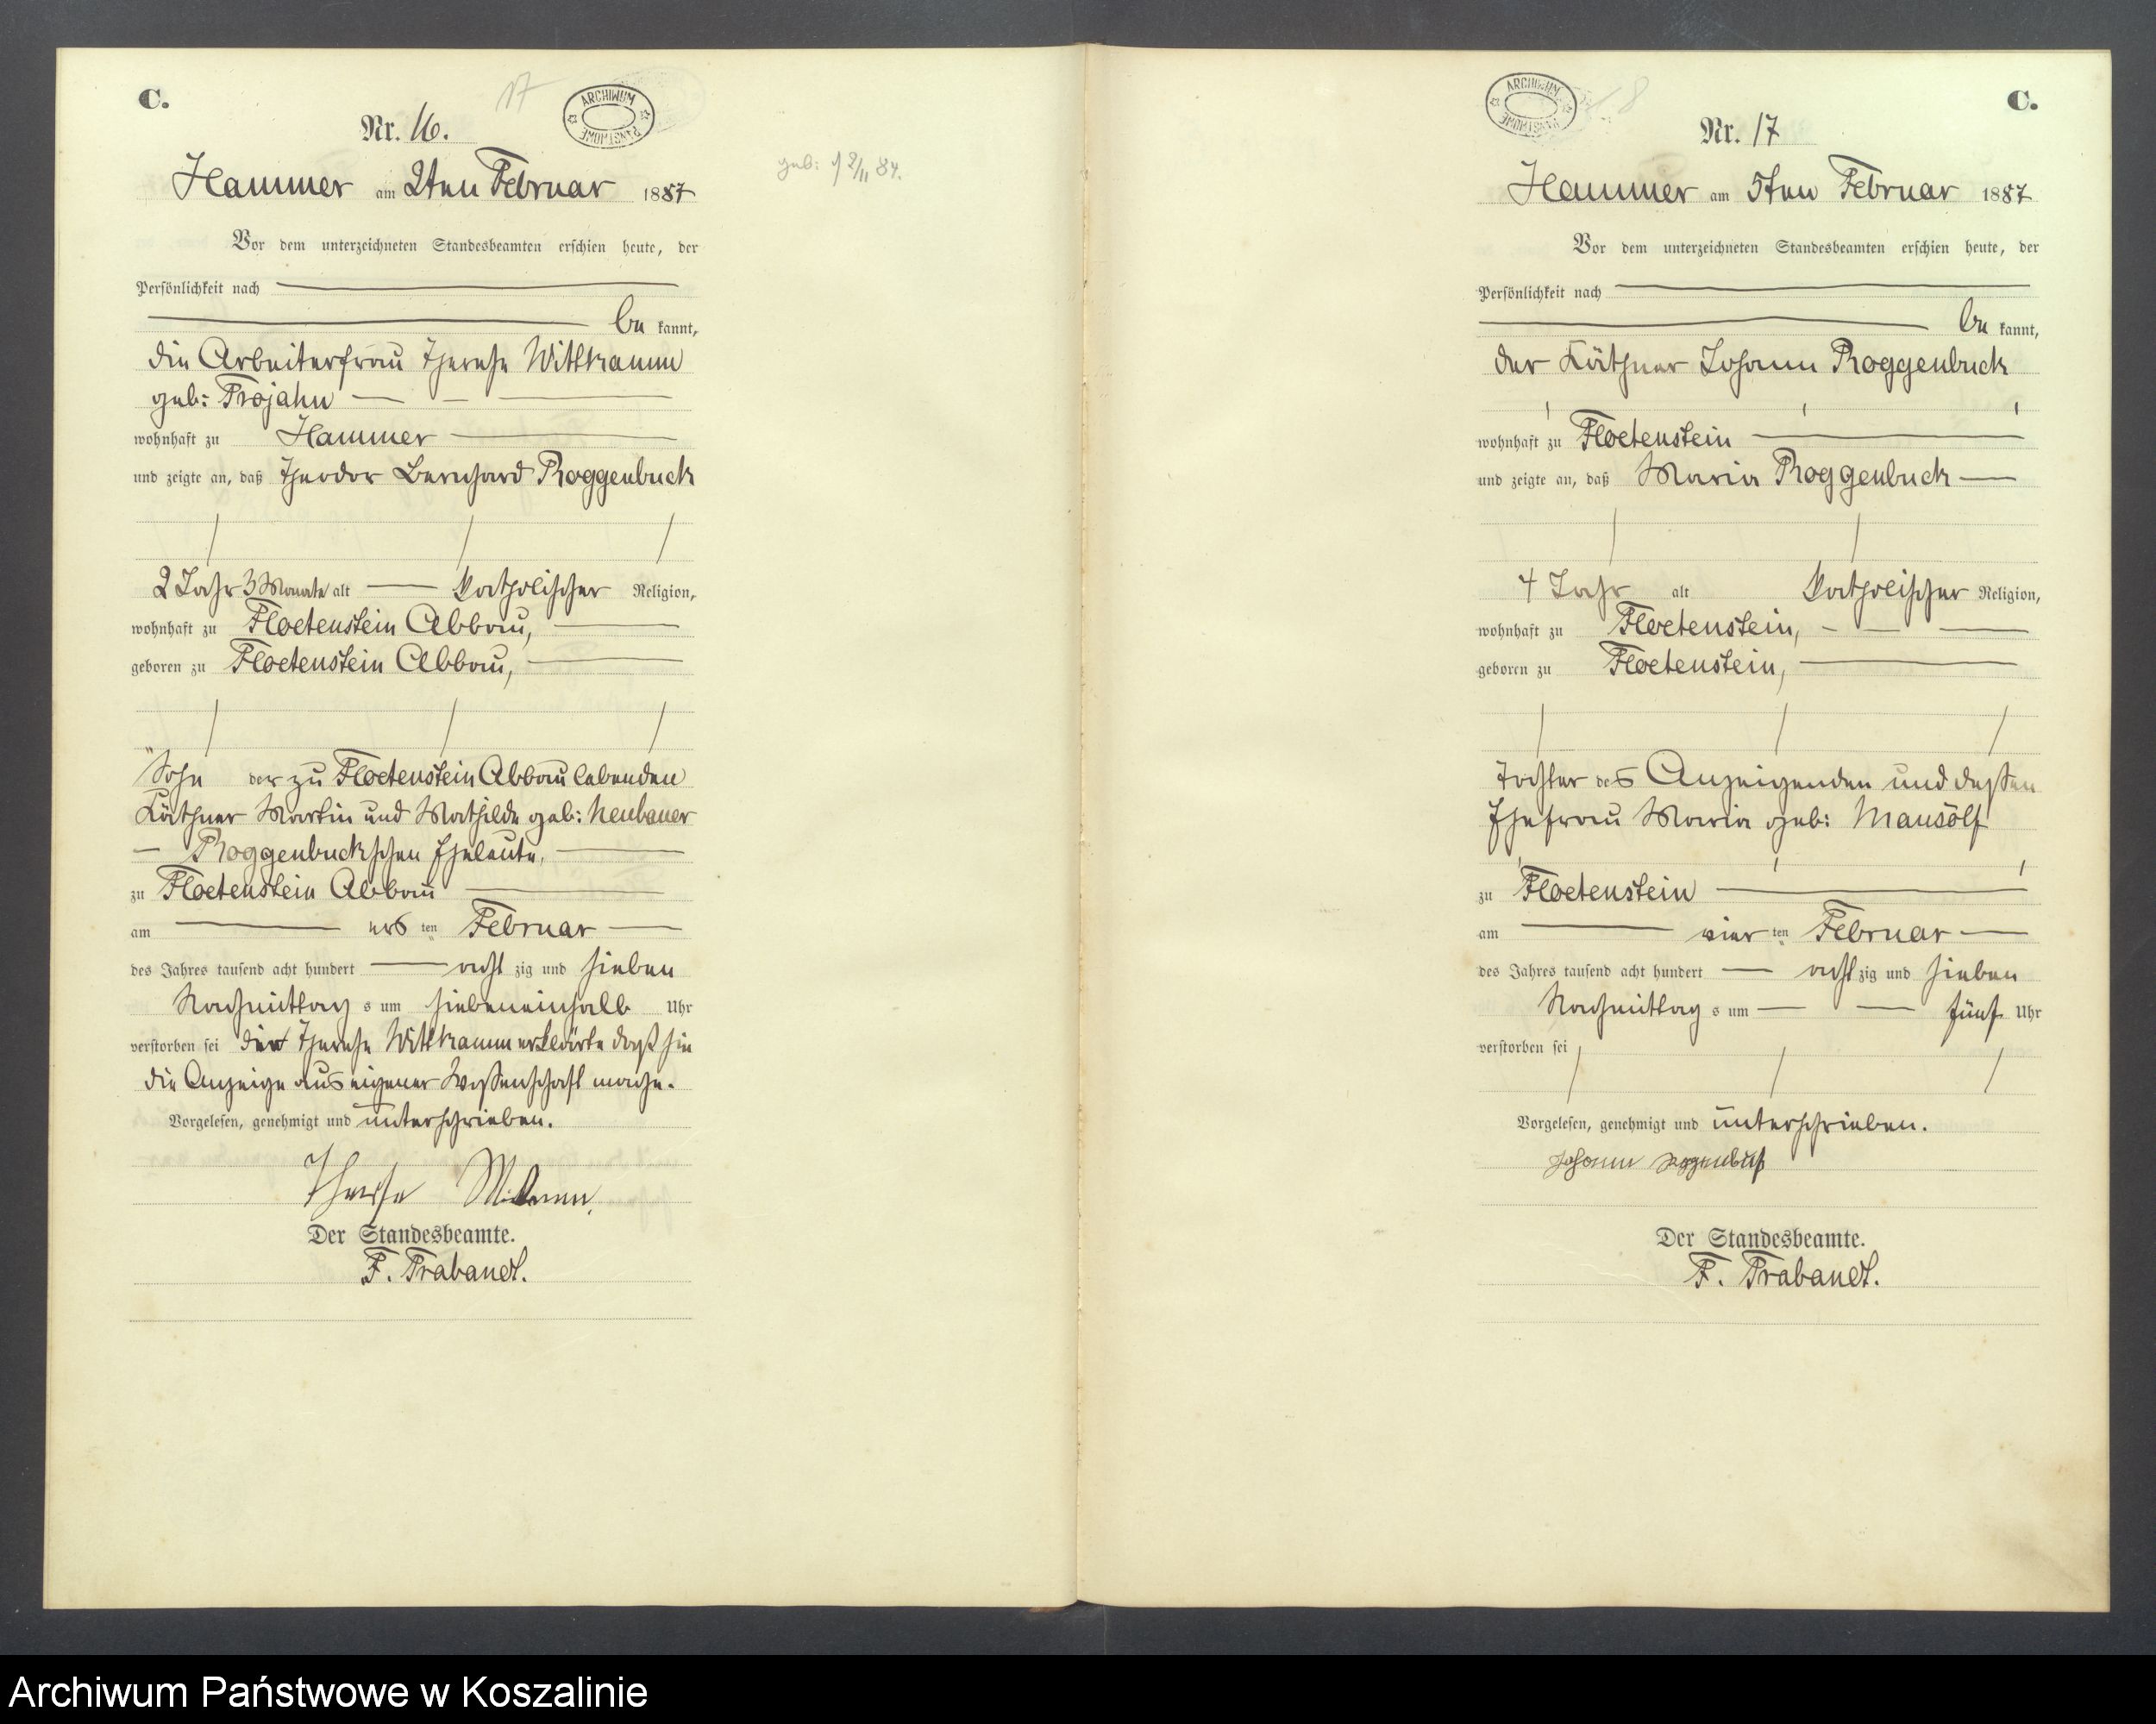 C.
17
ARCHIWUM PAŃSTWOWE
Nr. 16.
geb: 12/11 84.
Hammer am 2ten Februar 1887
Vor dem unterzeichneten Standesbeamten erschien heute, der
Persönlichkeit nach
be kannt,
die Arbeiterfrau Therese Wittkamm
geb: Trojahn
wohnhaft zu Hammer
und zeigte an, daß Theodor Bernhard Roggenbuck
2 Jahr 3 Monate alt katholischer Religion,
wohnhaft zu Floetenstein Abbau,
geboren zu Floetenstein Abbau,
Sohn der zu Floetenstein Abbau lebenden
Käthner Martin und Mathilde geb: Neubauer
Roggenbuckschen Eheleute,
zu Floetenstein Abbau
am ers ten Februar
des Jahres tausend acht hundert acht zig und sieben
Nachmittag s um siebeneinhalb Uhr
verstorben sei die Therese Wittkamm erklärte daß sie
die Anzeige aus eigener Wissenschaft mache.
Vorgelesen, genehmigt und unterschrieben.
Therese
Der Standesbeamte.
F. Trabandt.
C.
18
ARCHIWUM PAŃSTWOWE
Nr. 17
Hammer am 5ten Februar 1887
Vor dem unterzeichneten Standesbeamten erschien heute, der
Persönlichkeit nach
be kannt,
der Käthner Johann Roggenbuck
wohnhaft zu Floetenstein
und zeigte an, daß Maria Roggenbuck
4 Jahr alt katholischer Religion,
wohnhaft zu Floetenstein,
geboren zu Floetenstein,
Tochter des Anzeigenden und dessen
Ehefrau Maria geb: Mausolf
zu Floetenstein
am vier ten Februar
des Jahres tausend acht hundert acht zig und sieben
Nachmittag s um fünf Uhr
verstorben sei
Vorgelesen, genehmigt und unterschrieben.
Johann
Der Standesbeamte.
F. Trabandt.
Archiwum Państwowe w Koszalinie